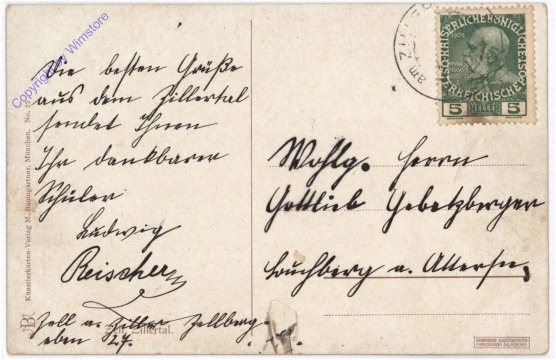 Copyright by Wimstore
Die besten Grüße
aus dem Zillertal
sendet Ihnen
Ihr dankbarer
Schüler
Ludwig
Reischer
Zell a. Ziller Zellberg
eben 27.
Zell, Zillertal.
Künstlerkarten-Verlag M. Baumgartner, München. No.
5 HELLER 5
am ZILLER
Wohlg. Herrn
Gottlieb Gebetzberger
a. Attersee